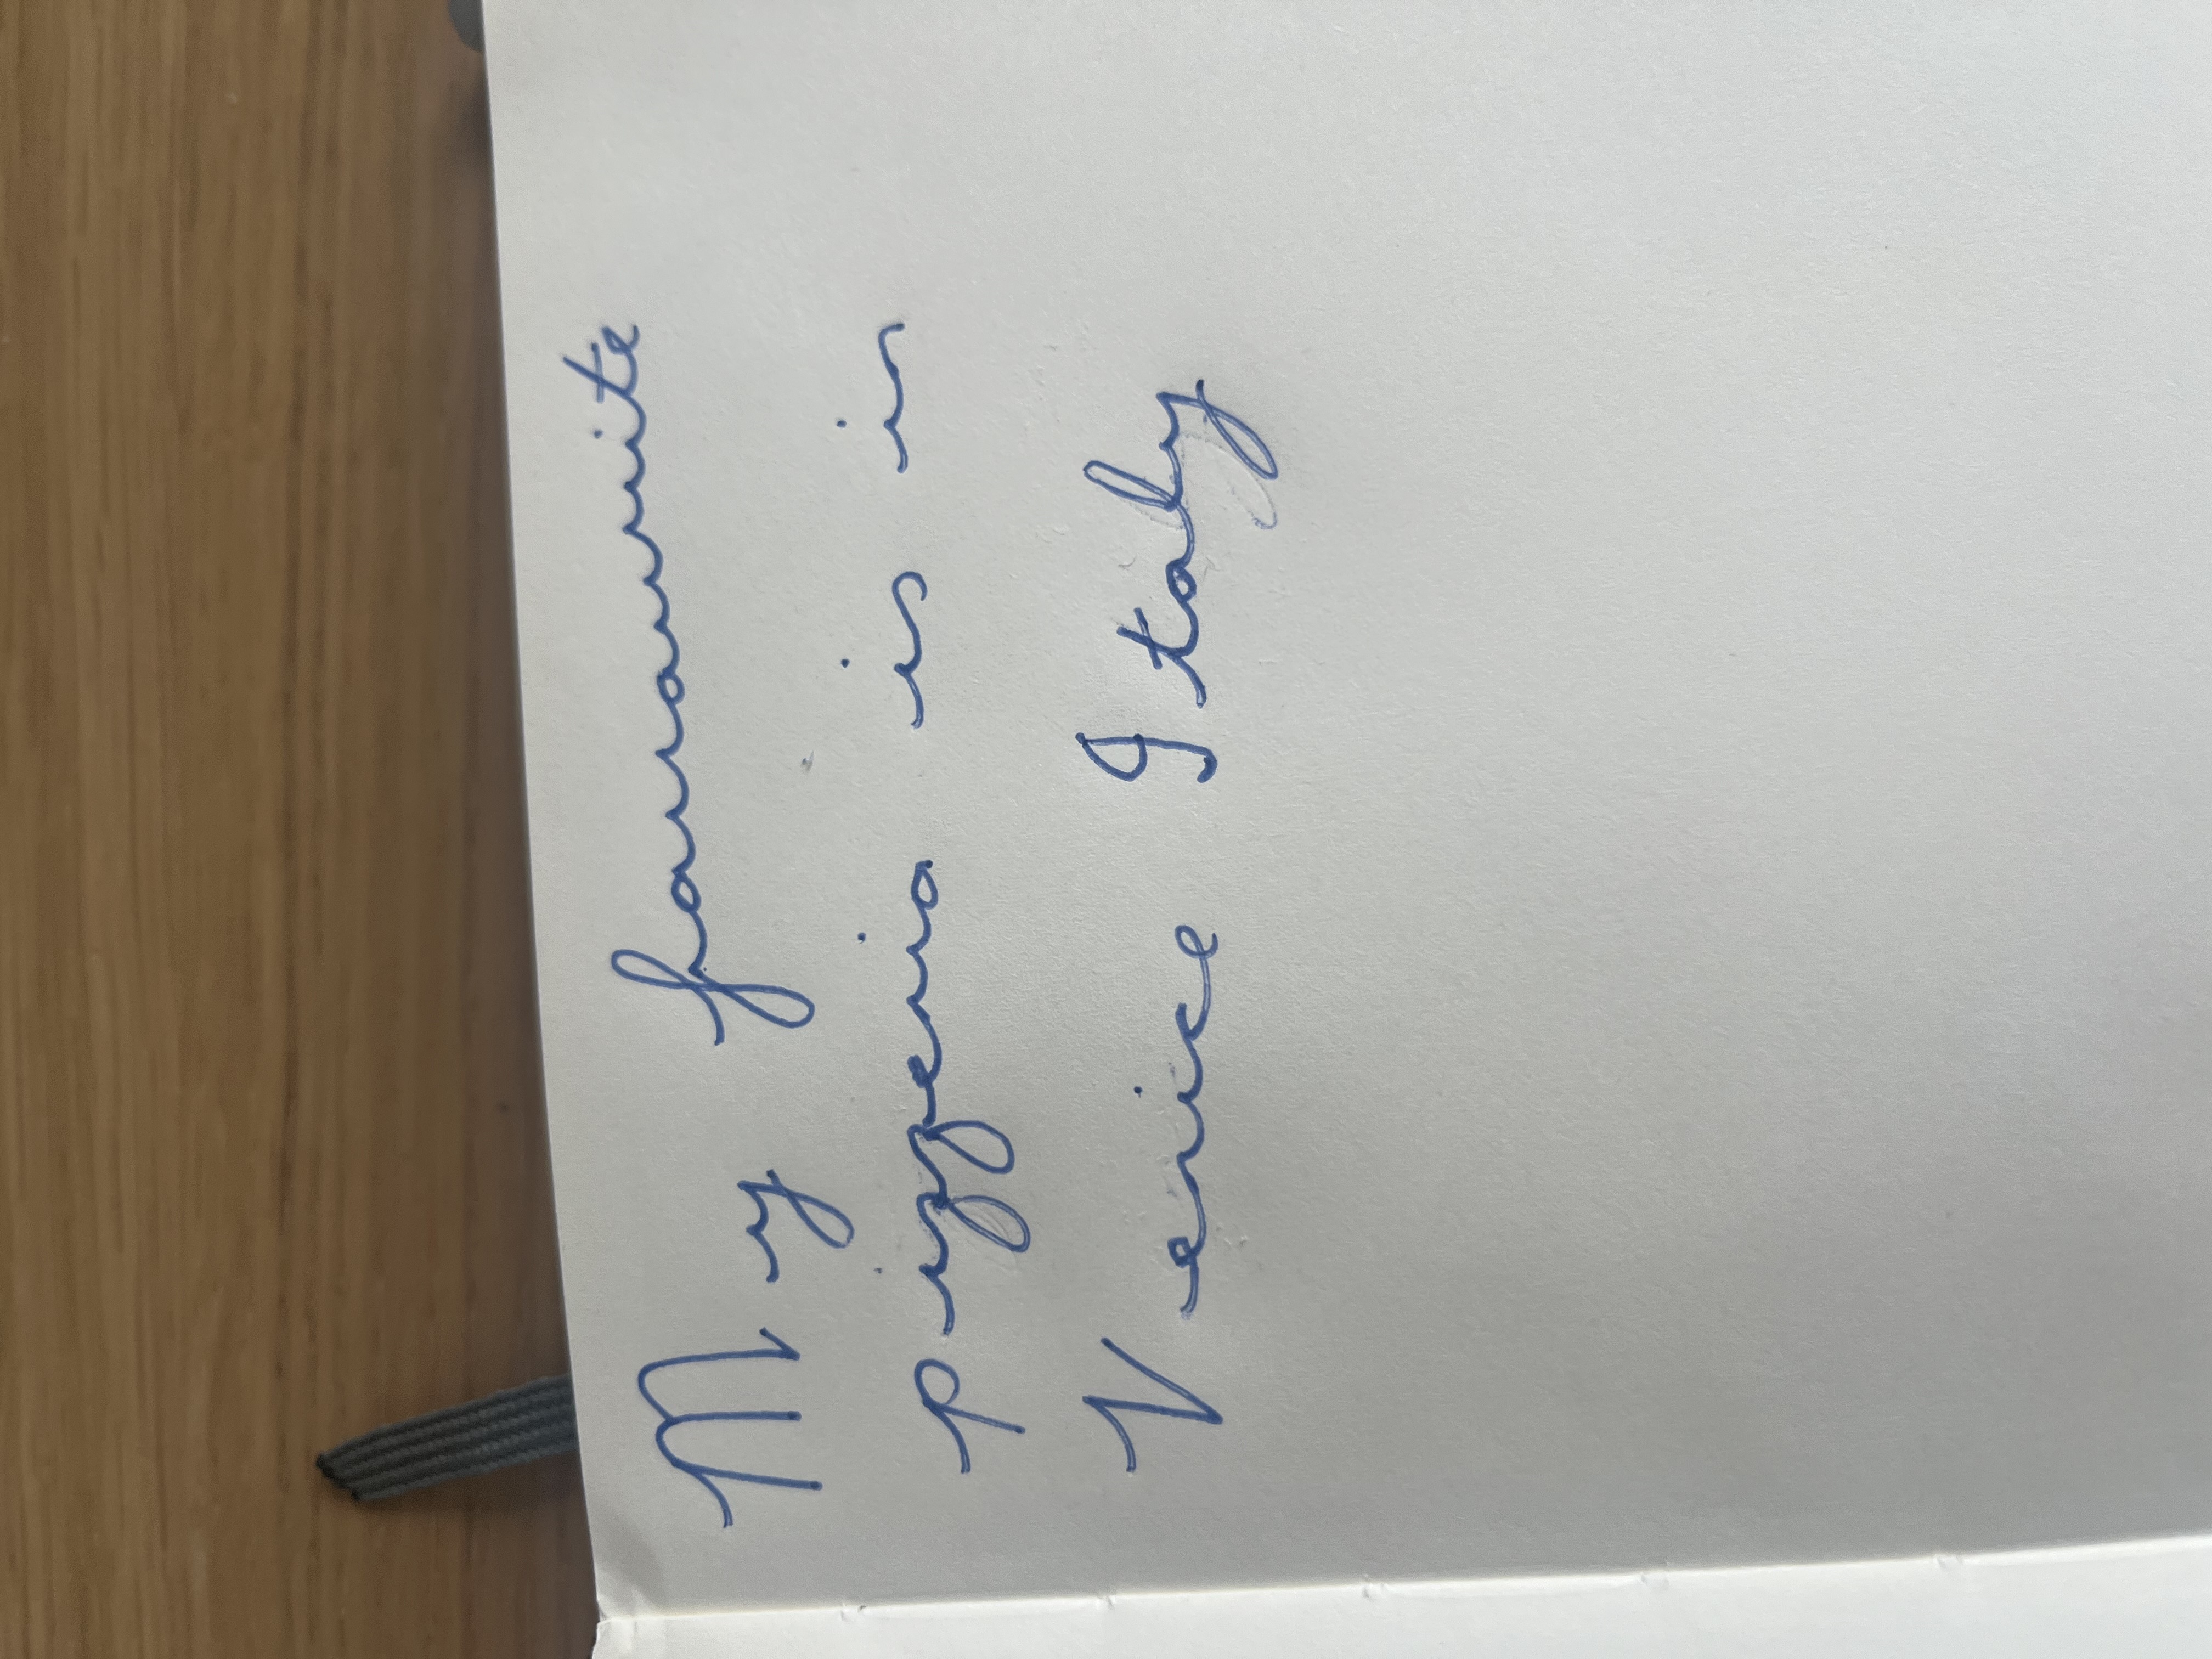 My favourite
pizzeria is in
Venice Italy